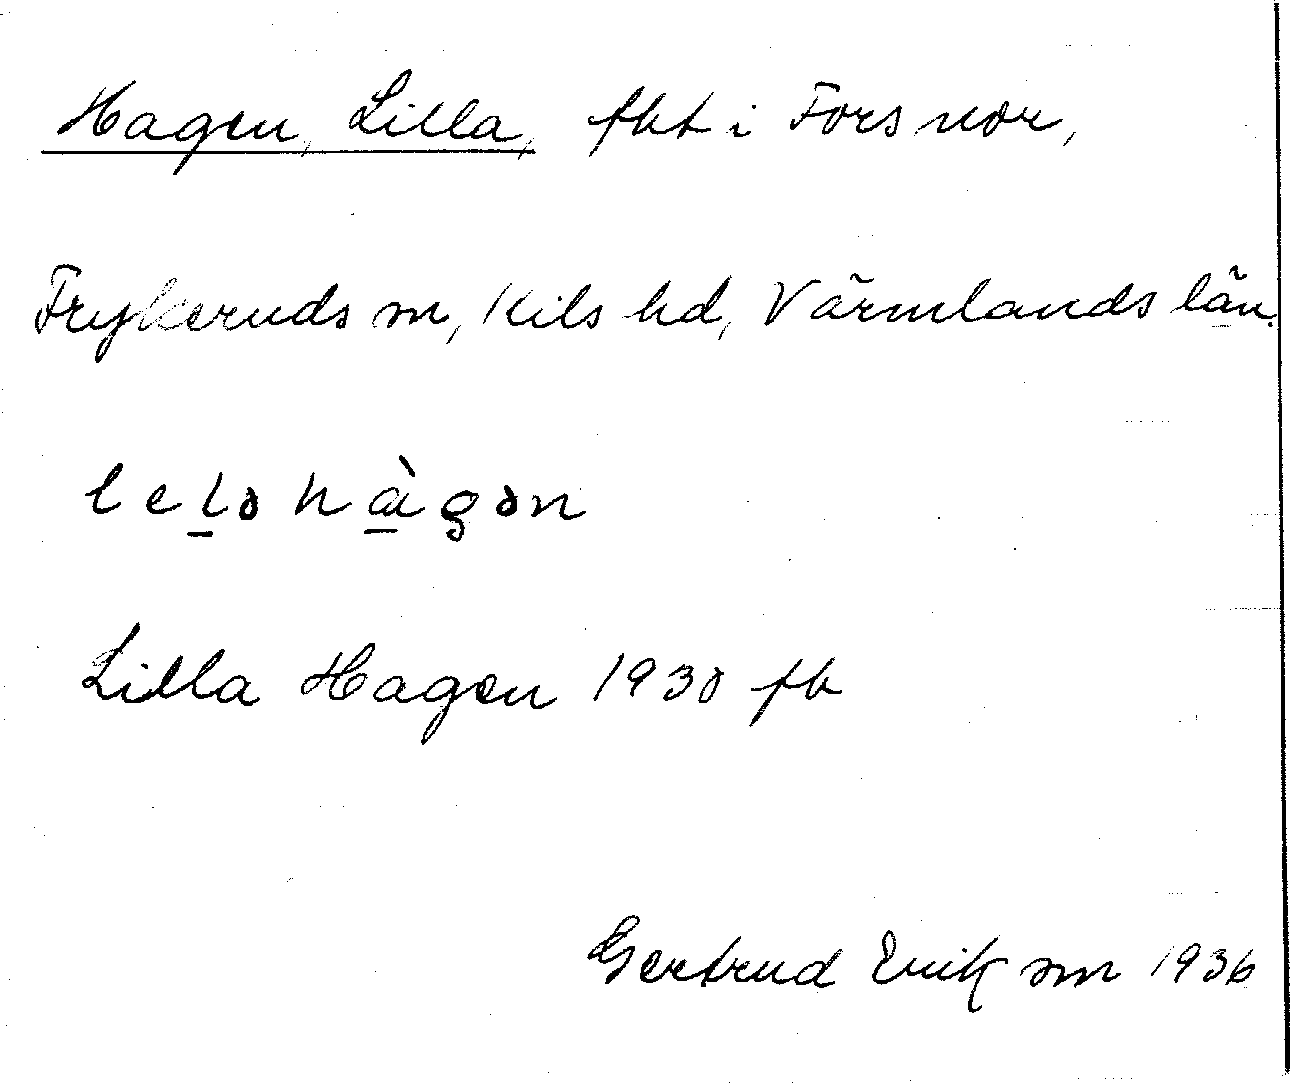 Hagen, Lilla, fbt i Forsnor,
Frykeruds sn, Kils hd, Värmlands län.
lel̠ə hà̠gən
Lilla Hagen 1930 fb
Gertrud Erikson 1936